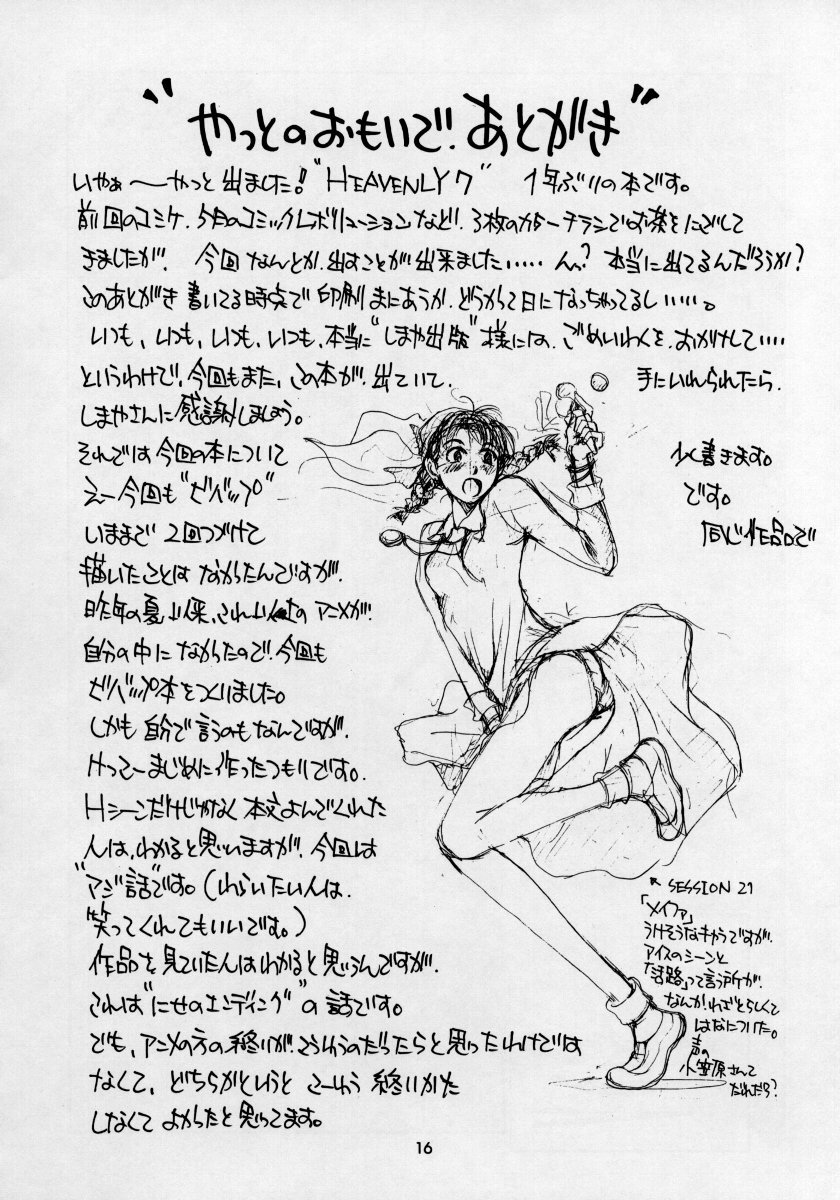 "やっとのおもいで!あとがき"
いやぁ〜やっと出ました!"HEAVENLY 7" 1年ぶりの本です。
前回のコミケ、5月のコミックレボリューションなど!3枚のカラーチラシでお茶をにごして
きましたが!今回なんとか、出すことが出来ました……ん?本当に出てるんだろうか?
このあとがき書いてる時点で印刷まにあうか、どうかって日になっちゃってるし……。
いつも、いつも、いつも、いつも、本当に"しまや出版"様には、ごめいわくを、おかけして……
というわけで、今回もまた、この本が、出ていて、手にいれられたら、
しまやさんに感謝しましょう。
それでは今回の本について少々書きます。
えー今回も"ビバップ"です。
いままで2回つづけて同じ作品で
描いたことはなかったんですが、
昨年の夏以来、これ以上のアニメが、
自分の中になかったので!今回も
ビバップ本をつくりました。
しかも自分で言うのもなんですが、
けっこーまじめに作ったつもりです。
Hシーンだけじゃなく本文よんでくれた
人は、わかると思いますが、今回は
"マジ話"です。(わらいたい人は、
笑ってくれてもいいです。)
作品を見ていた人はわかると思うんですが、
これは"にせのエンディング"の話です。
でも、アニメの方の終りが、こういうのだったらと思ったわけでは
なくて、どちらかというとこーゆう終いかた
しなくてよかったと思ってます。
↖SESSION 21
「メイファ」
うけそうなキャラですが、
アイスのシーンと
「活路」って言う所が、
なんかわざとらしくて
はなについた。
声の
小笠原さんて
だれだろ?
16